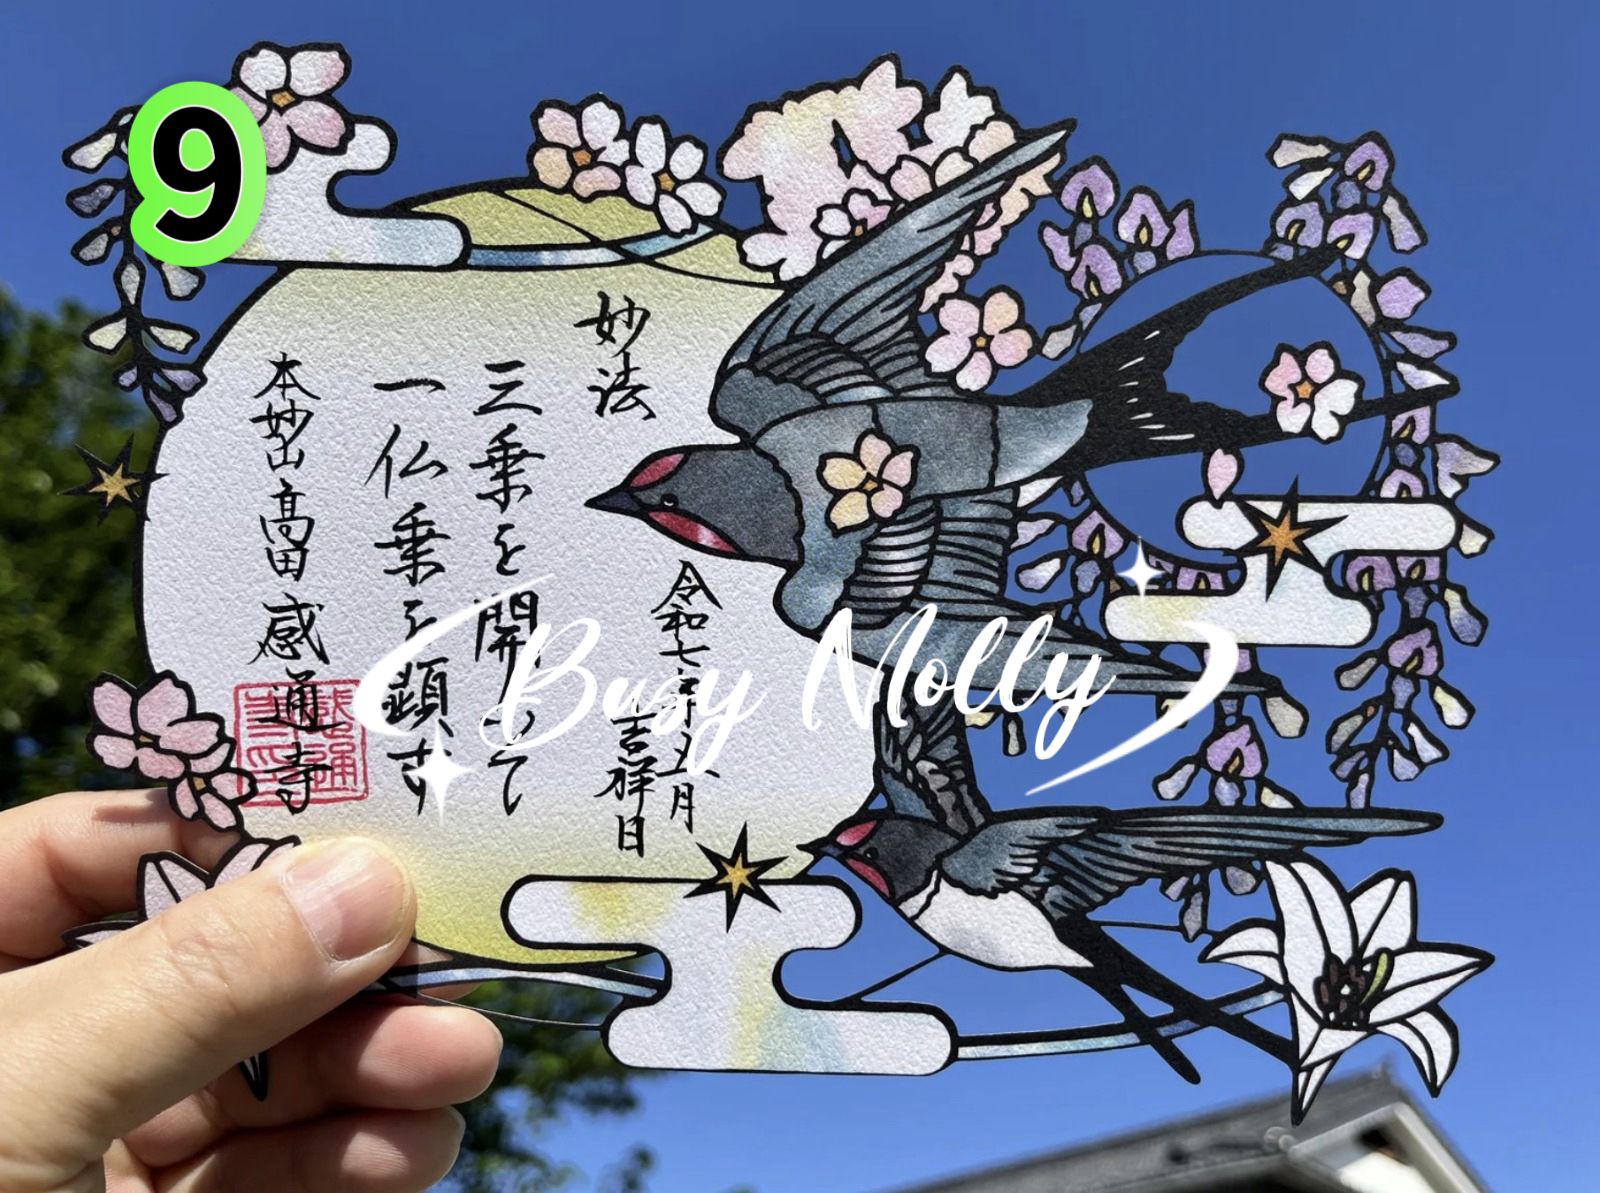 9
妙法
三乗を開いて
一仏乗を顕す
本妙山 高田 感通寺
令和七年五月
吉祥日
Busy Molly